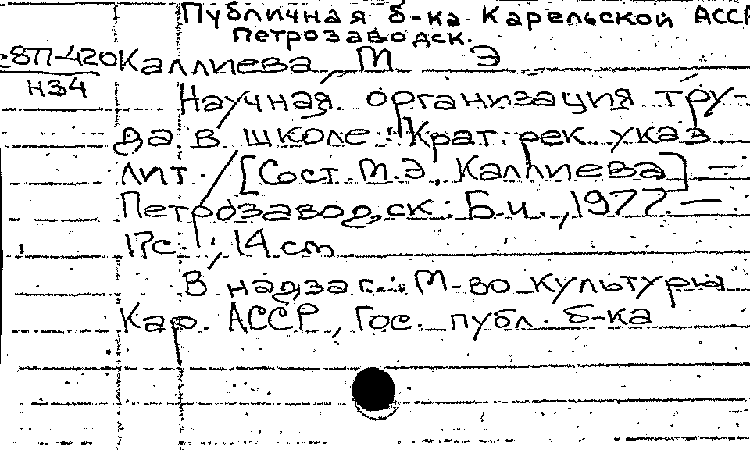 Публичная б-ка Карельской АССР
Петрозаводск.
-8П-420 Каллиева, М Э
Н34
Научная организация тру-
да в школе: Крат. рек. указ
лит. / [Сост. М.Э. Каллиева] —
Петрозаводск: Б.и., 1977. —
17с.; 14 см
В надзаг.: М-во культуры
Кар. АССР, Гос. публ. б-ка